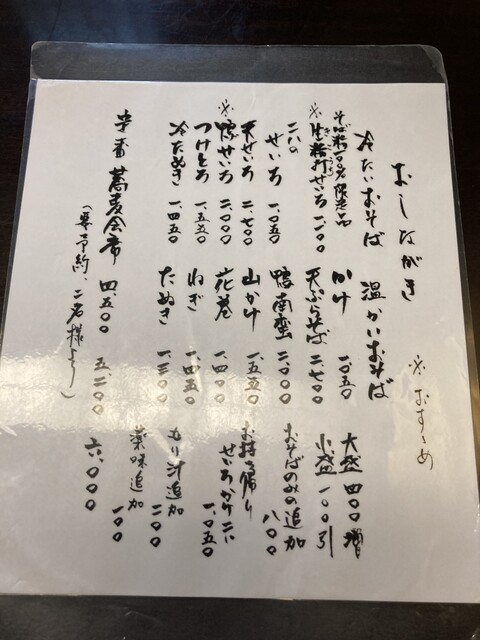 おしながき
※おすゝめ
冷たいおそば
そば粉100%限定品
※生粉打せいろ 一、二〇〇
二八
せいろ 一、〇五〇
天せいろ 二、七〇〇
※鴨せいろ 二、〇〇〇
つけとろ 一、五五〇
冷たぬき 一、四五〇
温かいおそば
かけ 一、〇五〇
天ぷらそば 二、七〇〇
鴨南蛮 二、〇〇〇
山かけ 一、五五〇
花巻 一、四〇〇
ねぎ 一、四五〇
たぬき 一、三〇〇
大盛 四〇〇増
小盛 一〇〇引
おそばのみの追加
八〇〇
お持ち帰り
せいろかけ二八
一、〇五〇
もり汁追加
二〇〇
薬味追加
一〇〇
蕎麦会席 四、五〇〇 五、二〇〇 六、〇〇〇
(要予約、二名様より)